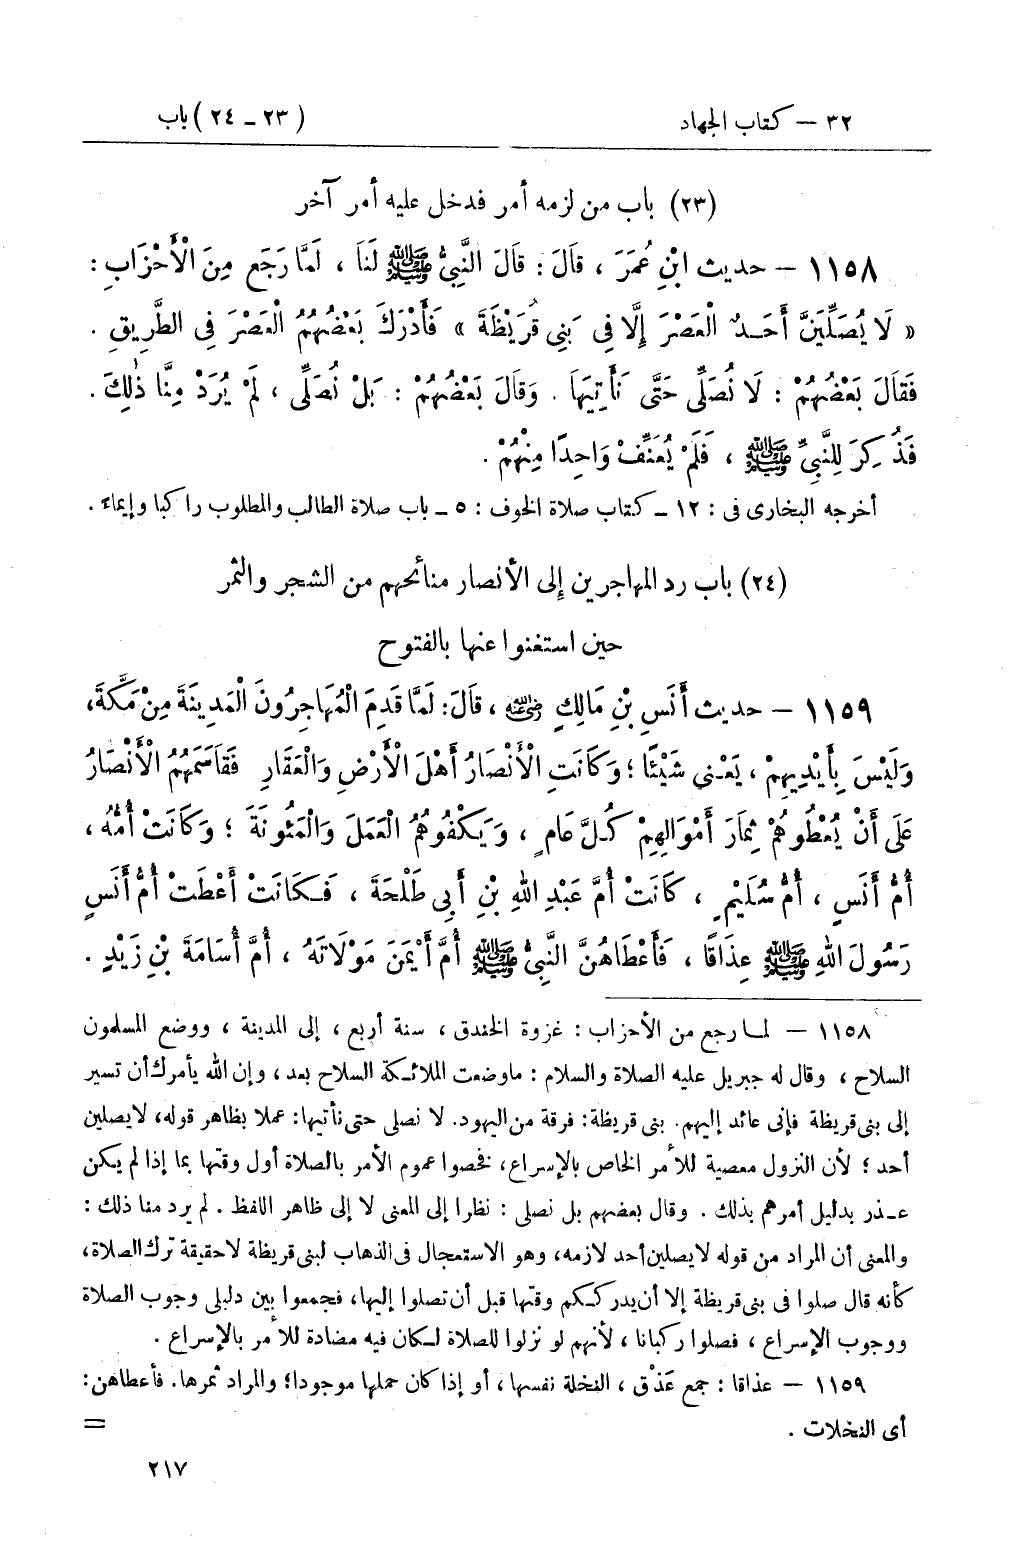 ٣٢ – كتاب الجهاد
(٢٣ ـ ٢٤) باب
(٢٣) باب من لزمه أمر فدخل عليه أمر آخر
١١٥٨ – حديث ابْنِ عُمَرَ ، قَالَ : قَالَ النَّبِيُّ ﷺ لَنَا ، لَمَّا رَجَعَ مِنَ الْأَحْزَابِ :
« لَا يُصَلِّيَنَّ أَحَدٌ الْعَصْرَ إِلَّا فِى بَنِى قُرَيْظَةَ » فَأَدْرَكَ بَعْضُهُمُ الْعَصْرَ فِى الطَّرِيقِ .
فَقَالَ بَعْضُهُمْ : لَا نُصَلِّى حَتَّى نَأْتِيَهَا . وَقَالَ بَعْضُهُمْ : بَلْ نُصَلِّى ، لَمْ يُرَدْ مِنَّا ذٰلِكَ .
فَذُكِرَ لِلنَّبِيِّ ﷺ ، فَلَمْ يُعَنِّفْ وَاحِدًا مِنْهُمْ .
أخرجه البخارى فى : ١٢ ـ كتاب صلاة الخوف : ٥ ـ باب صلاة الطالب والمطلوب راكبا وإيماء .
(٢٤) باب رد المهاجرين إلى الأنصار منائحهم من الشجر والثمر
حين استغنوا عنها بالفتوح
١١٥٩ – حديث أَنَسِ بْنِ مَالِكٍ رضي الله عنه ، قَالَ : لَمَّا قَدِمَ الْمُهَاجِرُونَ الْمَدِينَةَ مِنْ مَكَّةَ،
وَلَيْسَ بِأَيْدِيهِمْ ، يَعْنِى شَيْئًا ؛ وَكَانَتِ الْأَنْصَارُ أَهْلَ الْأَرْضِ وَالْعَقَارِ فَقَاسَمَهُمُ الْأَنْصَارُ
عَلَى أَنْ يُعْطُوهُمْ ثِمَارَ أَمْوَالِهِمْ كُلَّ عَامٍ ، وَيَكْفُوهُمُ الْعَمَلَ وَالْمَئُونَةَ ؛ وَكَانَتْ أُمُّهُ ،
أُمُّ أَنَسٍ ، أُمُّ سُلَيْمٍ ، كَانَتْ أُمَّ عَبْدِ اللهِ بْنِ أَبِى طَلْحَةَ ، فَكَانَتْ أَعْطَتْ أُمُّ أَنَسٍ
رَسُولَ اللهِ ﷺ عِذَاقًا ، فَأَعْطَاهُنَّ النَّبِيُّ ﷺ أُمَّ أَيْمَنَ مَوْلَاتَهُ ، أُمَّ أُسَامَةَ بْنِ زَيْدٍ .
١١٥٨ – لما رجع من الأحزاب : غزوة الخندق ، سنة أربع ، إلى المدينة ، ووضع المسلمون
السلاح ، وقال له جبريل عليه الصلاة والسلام : ماوضعت الملائكة السلاح بعد ، وإن الله يأمرك أن تسير
إلى بنى قريظة فإنى عائد إليهم. بنى قريظة: فرقة من اليهود. لا نصلى حتى نأتيها: عملا بظاهر قوله، لايصلين
أحد ؛ لأن النزول معصية للأمر الخاص بالإسراع، فخصوا عموم الأمر بالصلاة أول وقتها بما إذا لم يكن
عذر بدليل أمرهم بذلك . وقال بعضهم بل نصلى : نظرا إلى المعنى لا إلى ظاهر اللفظ . لم يرد منا ذلك :
والمعنى أن المراد من قوله لايصلين أحد لازمه، وهو الاستعجال فى الذهاب لبنى قريظة لاحقيقة ترك الصلاة،
كأنه قال صلوا فى بنى قريظة إلا أن يدرككم وقتها قبل أن تصلوا إليها، فجمعوا بين دليلى وجوب الصلاة
ووجوب الإسراع ، فصلوا ركبانا ، لأنهم لو نزلوا للصلاة لكان فيه مضادة للأمر بالإسراع .
١١٥٩ – عذاقا : جمع عَذْق ، النخلة نفسها ، أو إذا كان حملها موجودا؛ والمراد ثمرها. فأعطاهن:
أى النخلات .
=
٢١٧